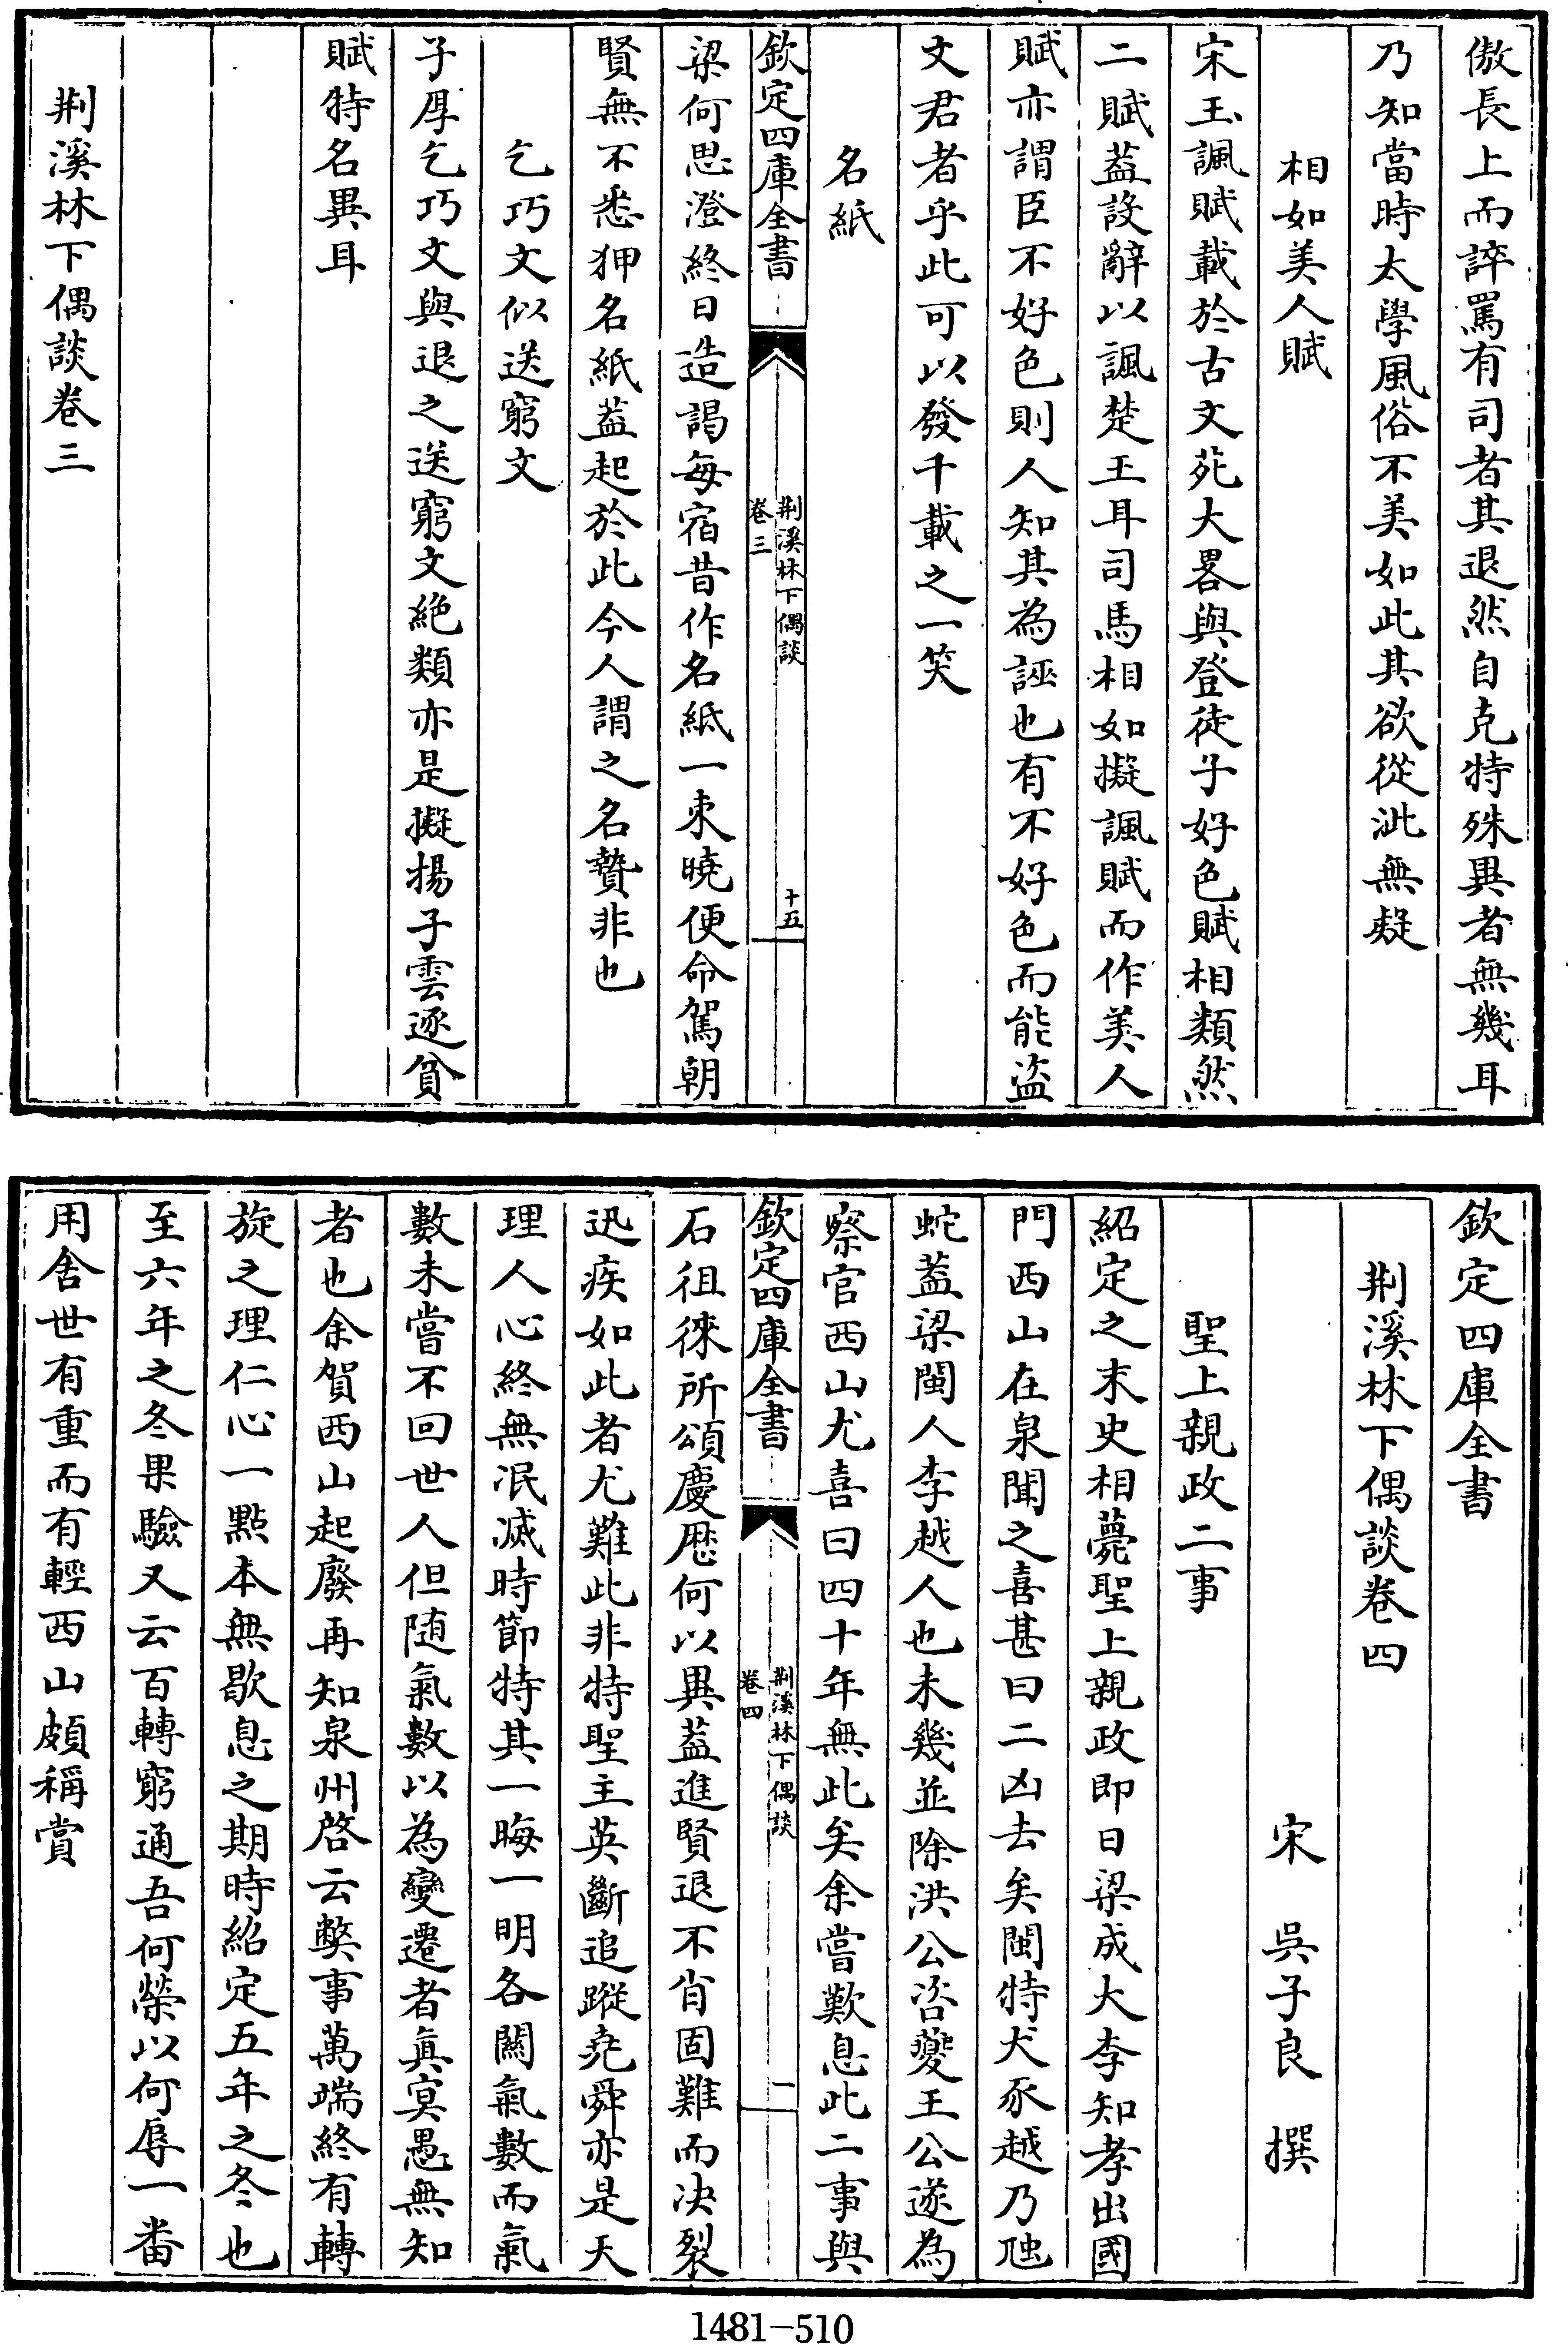 傲長上而誶罵有司者其退然自克特殊異者無幾耳
乃知當時太學風俗不美如此其欲從泚無疑
相如美人賦
宋玉諷賦載於古文苑大畧與登徒子好色賦相類然
二賦葢設辭以諷楚王耳司馬相如擬諷賦而作美人
賦亦謂臣不好色則人知其為誣也有不好色而能盜
文君者乎此可以發千載之一笑
名紙
欽定四庫全書
荆溪林下偶談
卷三
十五
梁何思澄終日造謁每宿昔作名紙一束曉便命駕朝
賢無不悉狎名紙葢起於此今人謂之名贄非也
乞巧文似送窮文
子厚乞巧文與退之送窮文絶類亦是擬揚子雲逐貧
賦特名異耳
荆溪林下偶談卷三
欽定四庫全書
荆溪林下偶談卷四
宋 吳子良 撰
聖上親政二事
紹定之末史相薨聖上親政即日梁成大李知孝出國
門西山在泉聞之喜甚曰二凶去矣閩特犬豕越乃虺
蛇葢梁閩人李越人也未幾並除洪公咨夔王公遂為
察官西山尤喜曰四十年無此矣余嘗歎息此二事與
欽定四庫全書
荆溪林下偶談
卷四
一
石徂徠所頌慶厯何以異葢進賢退不肖固難而决裂
迅疾如此者尤難此非特聖主英斷追蹤堯舜亦是天
理人心終無泯滅時節特其一晦一明各關氣數而氣
數未嘗不回世人但随氣數以為變遷者真冥愚無知
者也余賀西山起廢再知泉州啓云弊事萬端終有轉
旋之理仁心一點本無歇息之期時紹定五年之冬也
至六年之冬果驗又云百轉窮通吾何榮以何辱一畨
用舍世有重而有輕西山頗稱賞
1481-510